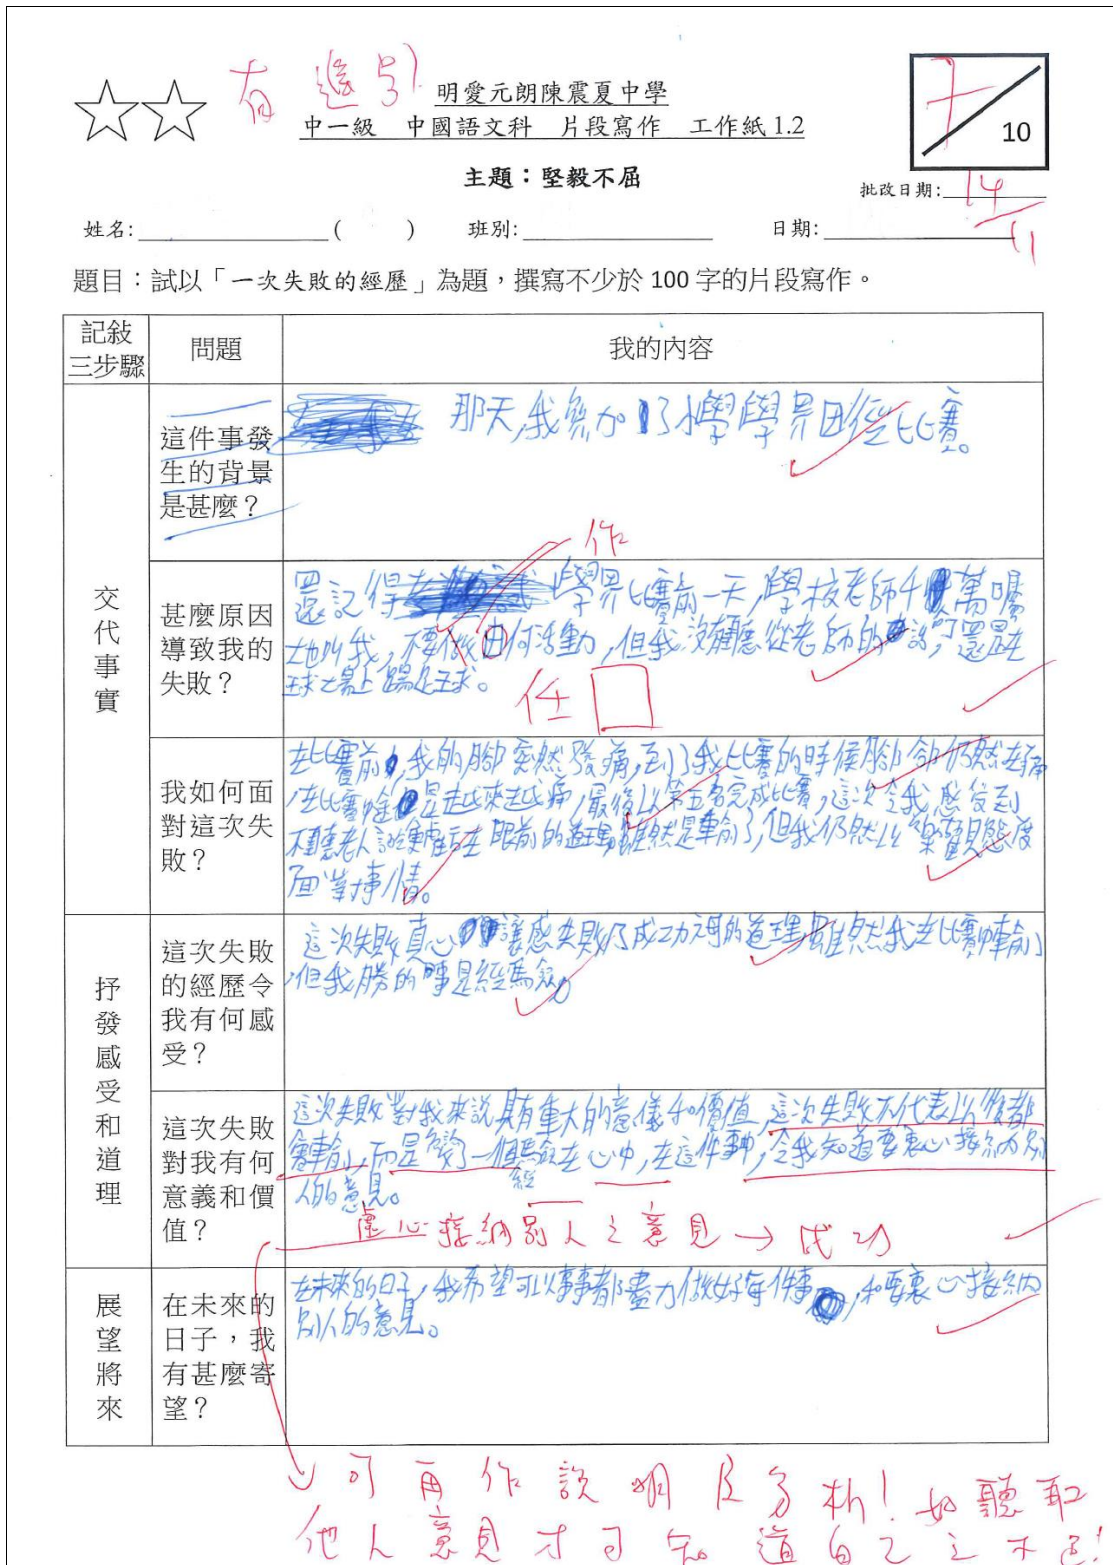 有進步!
明愛元朗陳震夏中學
中一級 中國語文科 片段寫作 工作紙 1.2
7
10
主題：堅毅不屈
批改日期: 14/11
姓名: ( ) 班別: 日期:
題目：試以「一次失敗的經歷」為題，撰寫不少於 100 字的片段寫作。
記敍三步驟 問題 我的內容
交代事實
這件事發生的背景是甚麼？
那天,我參加了小學學界田徑比賽。
甚麼原因導致我的失敗？
作
還記得學界比賽前一天,學校老師千萬囑
地叫我,不要做由何活動,但我沒有聽從老師的話,還是在
球場上踢足球。
任
我如何面對這次失敗？
在比賽前,我的腳突然發痛,到了我比賽的時候腳卻仍然在痛
,在比賽中是越來越痛,最後以第五名完成比賽,這次令我感受到
不聽老人言吃虧在眼前的道理,雖然是輸了,但我仍然以樂觀態度
面對事情。
抒發感受和道理
這次失敗的經歷令我有何感受？
這次失敗真心讓感失敗乃成功之母的道理,雖然我在比賽中輸了
,但我勝的事是經驗。
這次失敗對我有何意義和價值？
這次失敗對我來說具有重大的意儀和價值,這次失敗不代表以後都
會輸,而是變了一個經驗在心中,在這件事中,令我知道要裏心接納別
人的意見。
虛心接納別人之意見→成功
展望將來
在未來的日子，我有甚麼寄望？
在未來的日子,我希望可以事事都盡力做好每件事,和要裏心接納
別人的意見。
可再作說明及分析!如聽取
他人意見才可知道自己之不足!